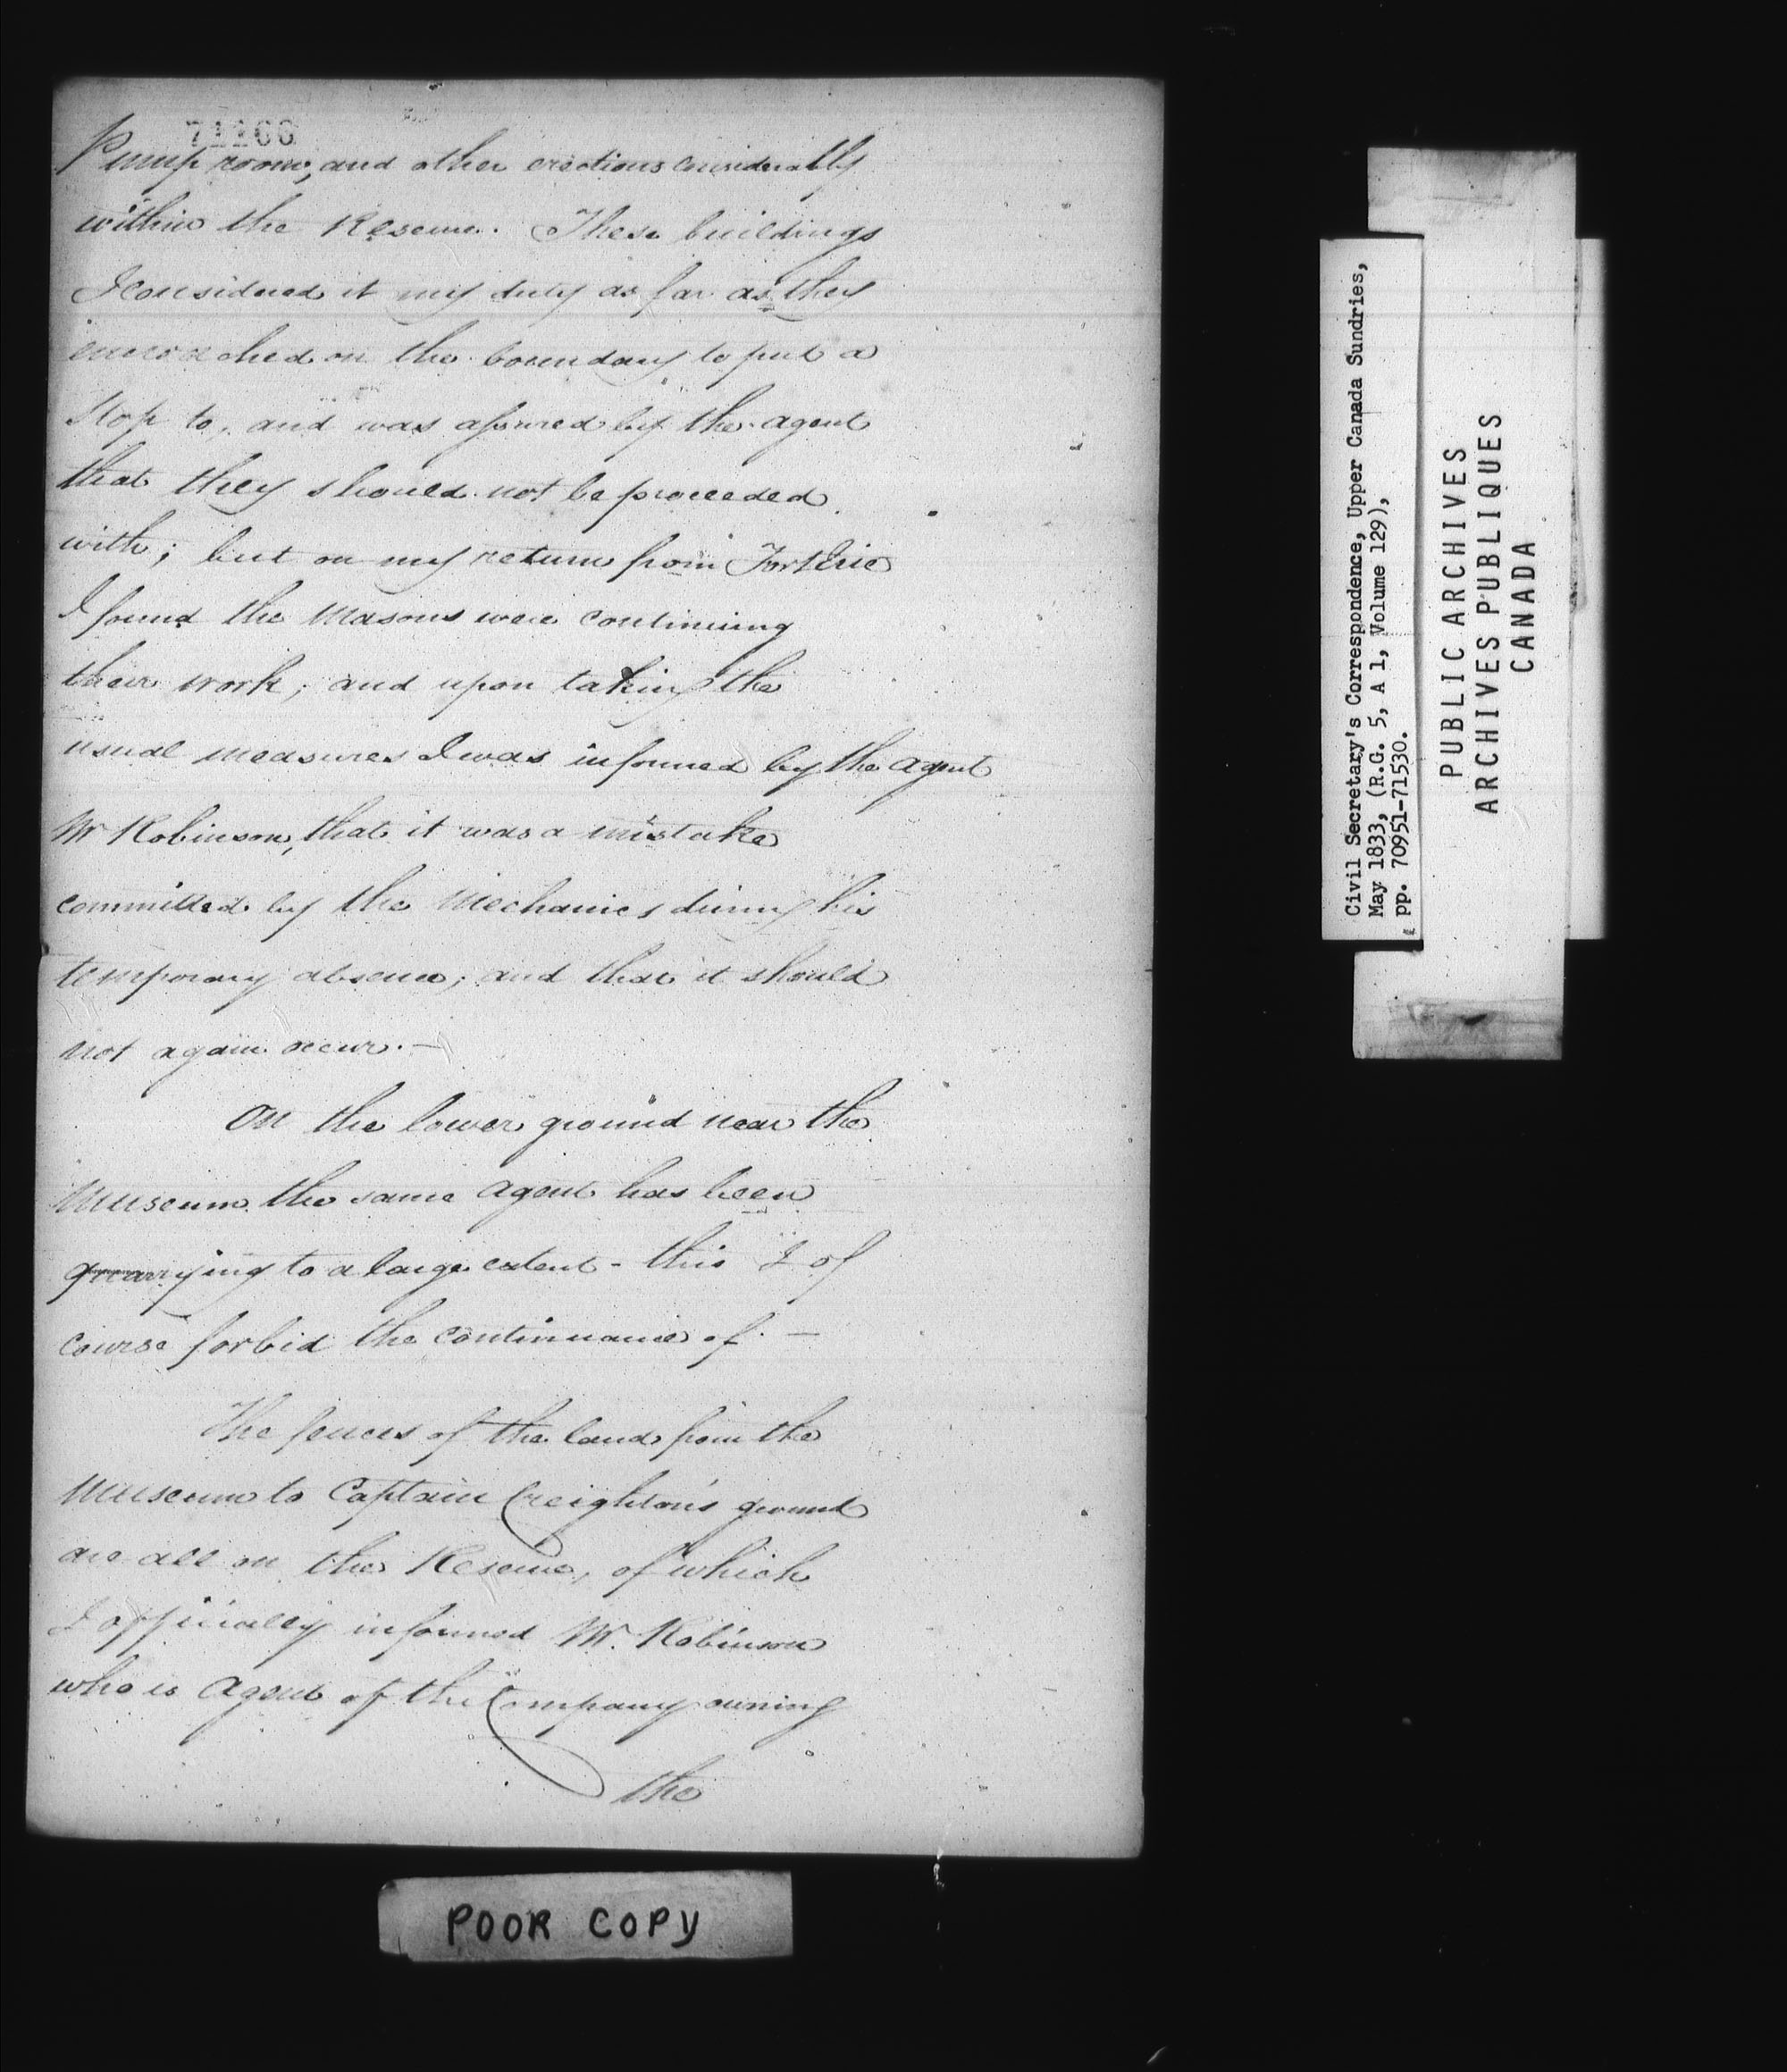 71166
Pump room, and other erections considerably
within the Reserve. These buildings
I considered it my duty as far as they
encroached on the boundary to put a
stop to, and was assured by the agent
that they should not be proceeded
with; but on my return from Fort Erie
I found the Masons were continuing
their work; and upon taking the
usual measures I was informed by the Agent
Mr Robinson, that it was a mistake
committed by the Mechanics during his
temporary absence; and that it should
not again occur. —
On the lower ground near the
Museum the same Agent has been
quarrying to a large extent - this I of
course forbid the continuance of. —
The fences of the land from the
Museum to Captain Creighton's ground
are all on the Reserve, of which
I officially informed Mr. Robinson
who is Agent of the Company owning
the
POOR COPY
Civil Secretary's Correspondence, Upper Canada Sundries,
May 1833, (R.G. 5, A 1, Volume 129),
pp. 70951-71530.
PUBLIC ARCHIVES
ARCHIVES PUBLIQUES
CANADA